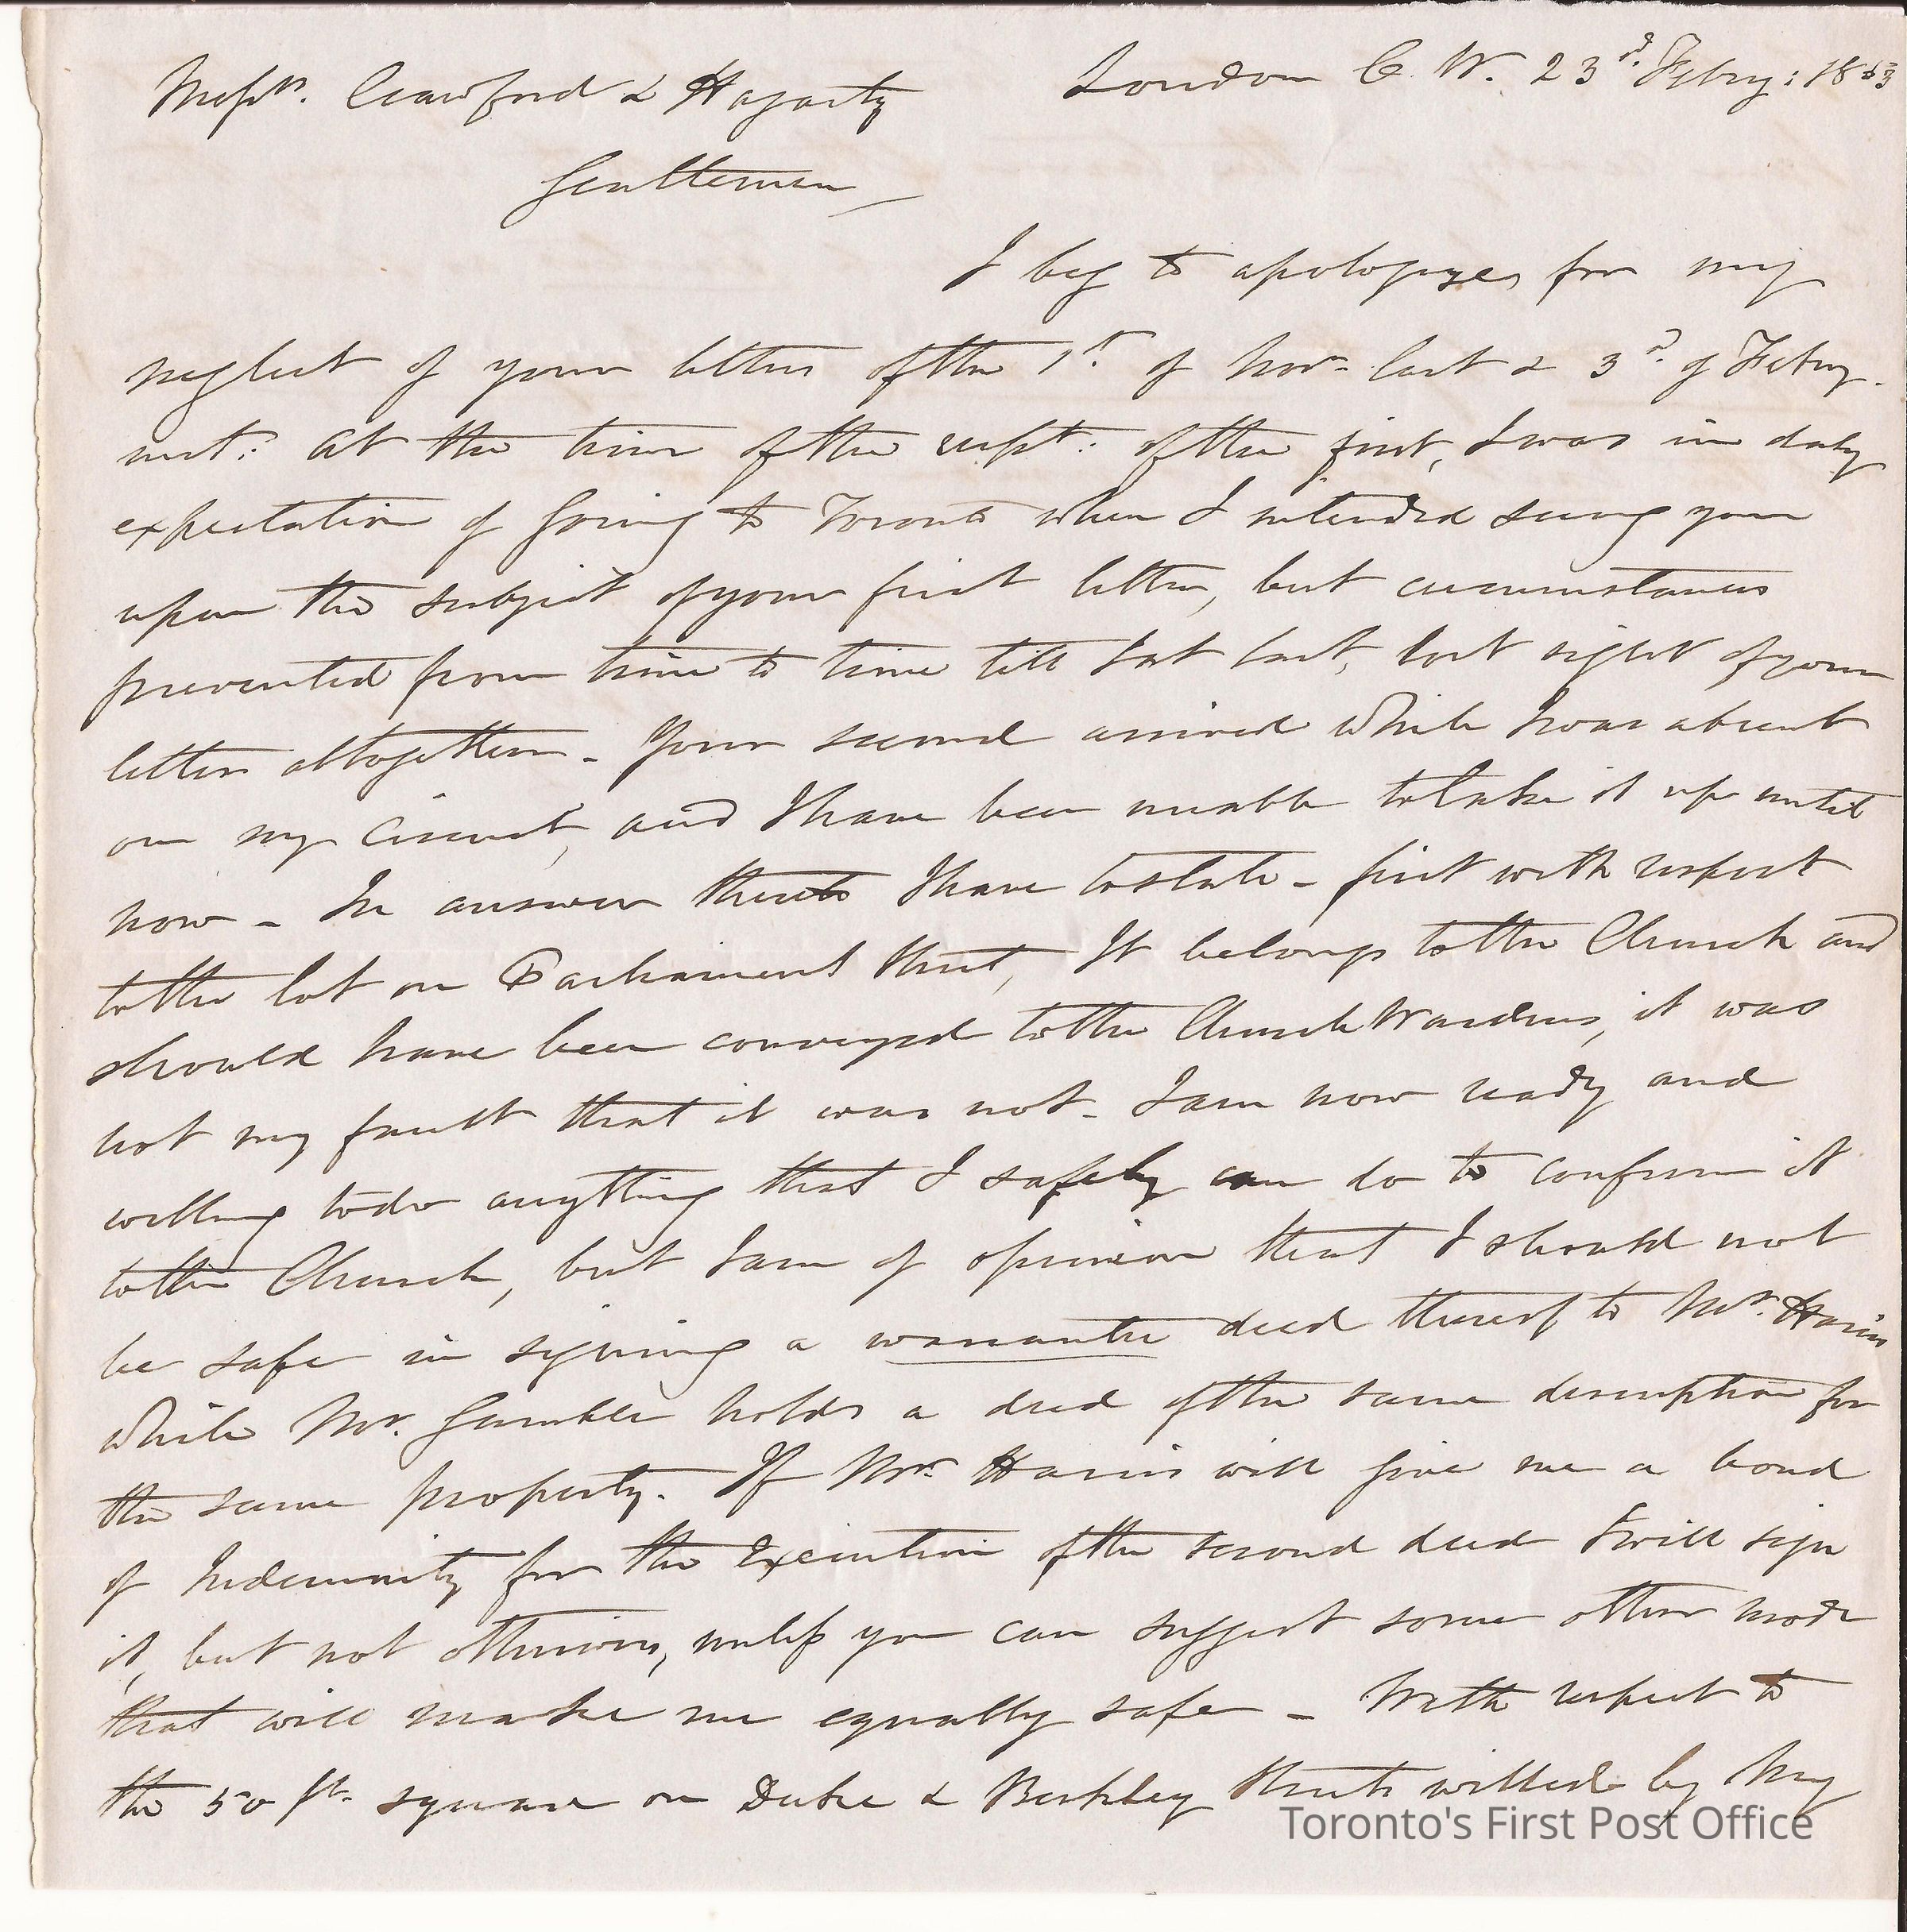 Messrs. Crawford & Hagarty
London C. W. 23rd. Febry: 1853
Gentlemen,
I beg to apologize for my
neglect of your letters of the 1st. of Novr. last & 3rd. of Febry.
inst: At the time of the recpt: of the first, I was in daily
expectation of going to Toronto when I intended seeing you
upon the subject of your first letter, but circumstances
prevented from time to time till I at last, lost sight of your
letter altogether - Your second arrived while I was absent
on my Circuit, and I have been unable to take it up until
now - In answer thereto I have to state - first with respect
to the lot on Parliament Street, It belongs to the Church and
should have been conveyed to the Church Wardens, it was
not my fault that it was not - I am now ready and
willing to do anything that I safely can do to confirm it
to the Church, but I am of opinion that I should not
be safe in signing a warrantee deed thereof to Mr. Harris
while Mr. Gamble holds a deed of the same description for
the same property. If Mr. Harris will give me a bond
of Indemnity for the Execution of the second deed I will sign
it, but not otherwise, unless you can suggest some other mode
that will make me equally safe - With respect to
the 50 ft. square on Duke & Berkley Streets willed by my
Toronto's First Post Office